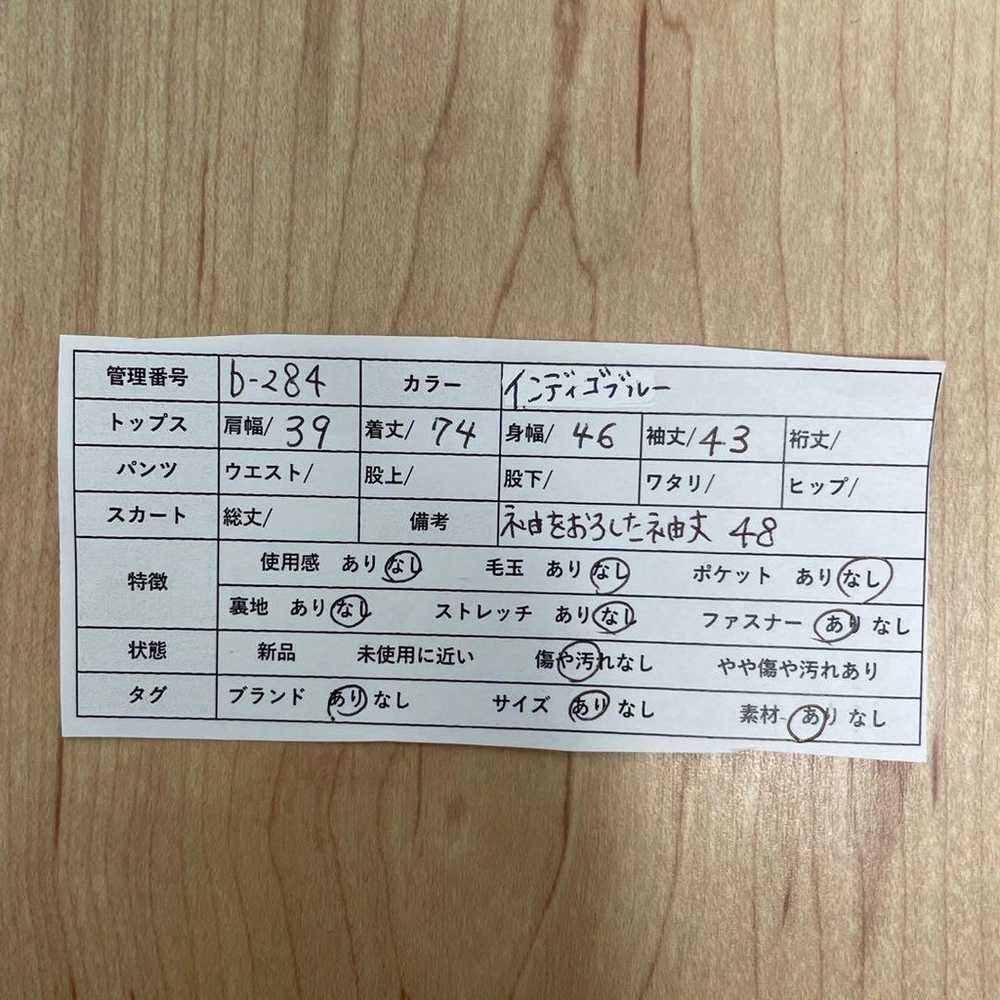 管理番号 b-284 カラー インディゴブルー
トップス 肩幅/ 39 着丈/ 74 身幅/ 46 袖丈/ 43 裄丈/
パンツ ウエスト/ 股上/ 股下/ ワタリ/ ヒップ/
スカート 総丈/ 備考 袖をおろした袖丈 48
特徴 使用感 あり なし 毛玉 あり なし ポケット あり なし
裏地 あり なし ストレッチ あり なし ファスナー あり なし
状態 新品 未使用に近い 傷や汚れなし やや傷や汚れあり
タグ ブランド あり なし サイズ あり なし 素材 あり なし